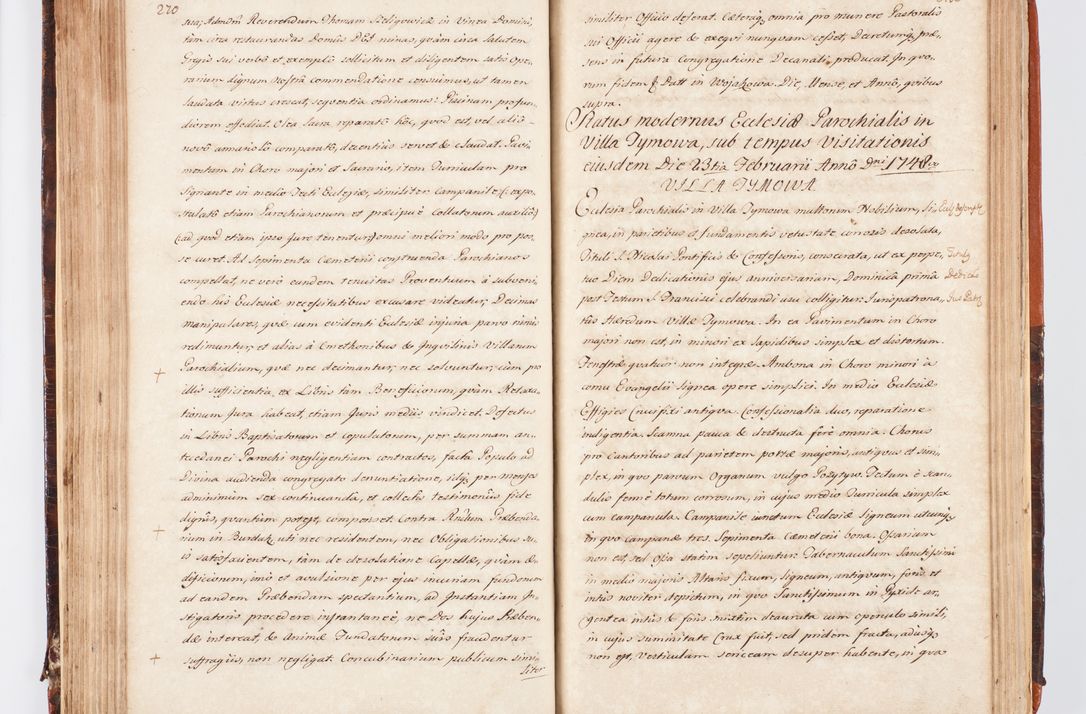 270
sua; Admodm Reverendum Thomam Szeligowicz in Vinea Domini,
tam circa restaurandas Domus Dei ruinas, quam circa Salutem
Gregis sui verbo et exemplo sollicitum et diligentem satis Ope-
rarium dignum nostra commendatione censuimus, ut tamen
laudata virtus crescat, sequentia ordinamus: Piscinam profun-
diorem effodiat. Olea Sacra reparato hoc, quod est, vel alio
novo armariolo comparato, decentius servet & claudat. Pavi-
mentum in Choro majori et Sacrario, item Turriculam pro
Signante in medio Tecti Ecclesiæ, similiter Campanile (: expo-
stulato etiam Parochianorum et præcipuè Collatorum auxilio:)
(:ad quod etiam ipso jure tenentur:) omni meliori modo pro pos-
se curet. Ad Sepimenta Cæmeterii construenda Parochianos
compellat, ne verò eundem tenuitas Proventuum à subveni-
endo his Ecclesiæ necessitatibus excusare videatur, Decimas
manipulares, quæ cum evidenti Ecclesiæ injuria parvo nimis
redimuntur, et alias à Cmethonibus & Inquilinis Villarum
Parochialium, quæ nec decimantur, nec solvuntur, cùm pro
illis sufficientia ex Libris tàm Beneficiorum, quàm Retaxa-
tionum Jura habeat, etiam Juris mediis vindicet. Defectus
in Libris Baptisatorum et copulatorum, per summam an-
tecedanei Parochi negligentiam contractos, facta Populo ad
Divina audienda congregato denuntiatione, idq; per menses
adminimum sex continuanda, et collectis testimoniis fide
dignis, quantùm potest, compenset. Contra Rndum Præbenda-
rium in Burduk, uti nec residentem, nec Obligationibus su-
is satisfacientem, tàm de desolatione Capellæ, quàm æ-
dificiorum, imò et avulsione per ejus incuriam fundorum
ad eandem Præbendam spectantium, ad Instantiam In-
stigatoris procedere instantanee, ne Dos hujus Præben-
dæ intereat, & Animæ Fundatorum suis fraudentur
suffragiis, non negligat. Concubinarium publicum simi-
liter
similiter Officio deferat. Cæteraq; omnia pro munere Pastoralis
sui Officii agere & exequi nunquam cesset, Decretumq; præ-
sens in futura Congregatione Decanali producat. In quo-
rum fidem &. Datt in Wojakowa. Die, Mense, et Anno, quibus
supra.
Status modernus Ecclesiæ Parochialis in
Villa Tymowa, sub tempus Visitationis
eiusdem Die 23tia Februarii Anno Dni 1748vo
VILLA TYMOWA
Ecclesia Parochialis in Villa Tymowa multorum Nobilium, li-
gnea, in parietibus et fundamentis vetustate corrosis desolata,
Tituli S. Nicolai Pontificis & Confessoris, consecrata, ut ex perpe-
tuo Diem Dedicationis ejus anniversariam, Dominica prima
post Festum S. Francisci celebrandi usu colligitur. Jurispatrona-
tus Hæredum Villæ Tymowa. In ea Pavimentum in Choro
majori non est, in minori ex lapidibus simplex et distortum.
Fenestræ quatuor non integræ. Ambona in Choro minori à
cornu Evangelii lignea opere simplici. In medio Ecclesiæ
Effigies Crucifixi antiqua. Confessionalia duo, reparatione
indigentia. Scamna pauca & destructa ferè omnia. Chorus
pro Cantoribus ad parietem portæ majoris, antiquus et sim-
plex, in quo parvum Organum vulgo Pozytyw. Tectum è scan-
dulis fermè totum corrosum, in cujus medio Turricula simplex
cum campanula. Campanile iunctum Ecclesiæ ligneum utcunq;
in quo campanæ tres. Sepimenta Cæmeterii bona. Ossarium
non est, sed Ossa statim sepeliuntur. Tabernaculum Sanctissimi
in medio majoris Altaris fixum, ligneum, antiquum, foris et
intùs noviter depictum, in quo Sanctissimum in Pyxide ar-
gentea intùs & foris mixtim deaurata cum operculo simili,
in cujus summitate Crux fuit, sed pridem fracta, adusq;
non est, vesticulam sericeam desuper habente, in qua
Titulq
Jus Patrq